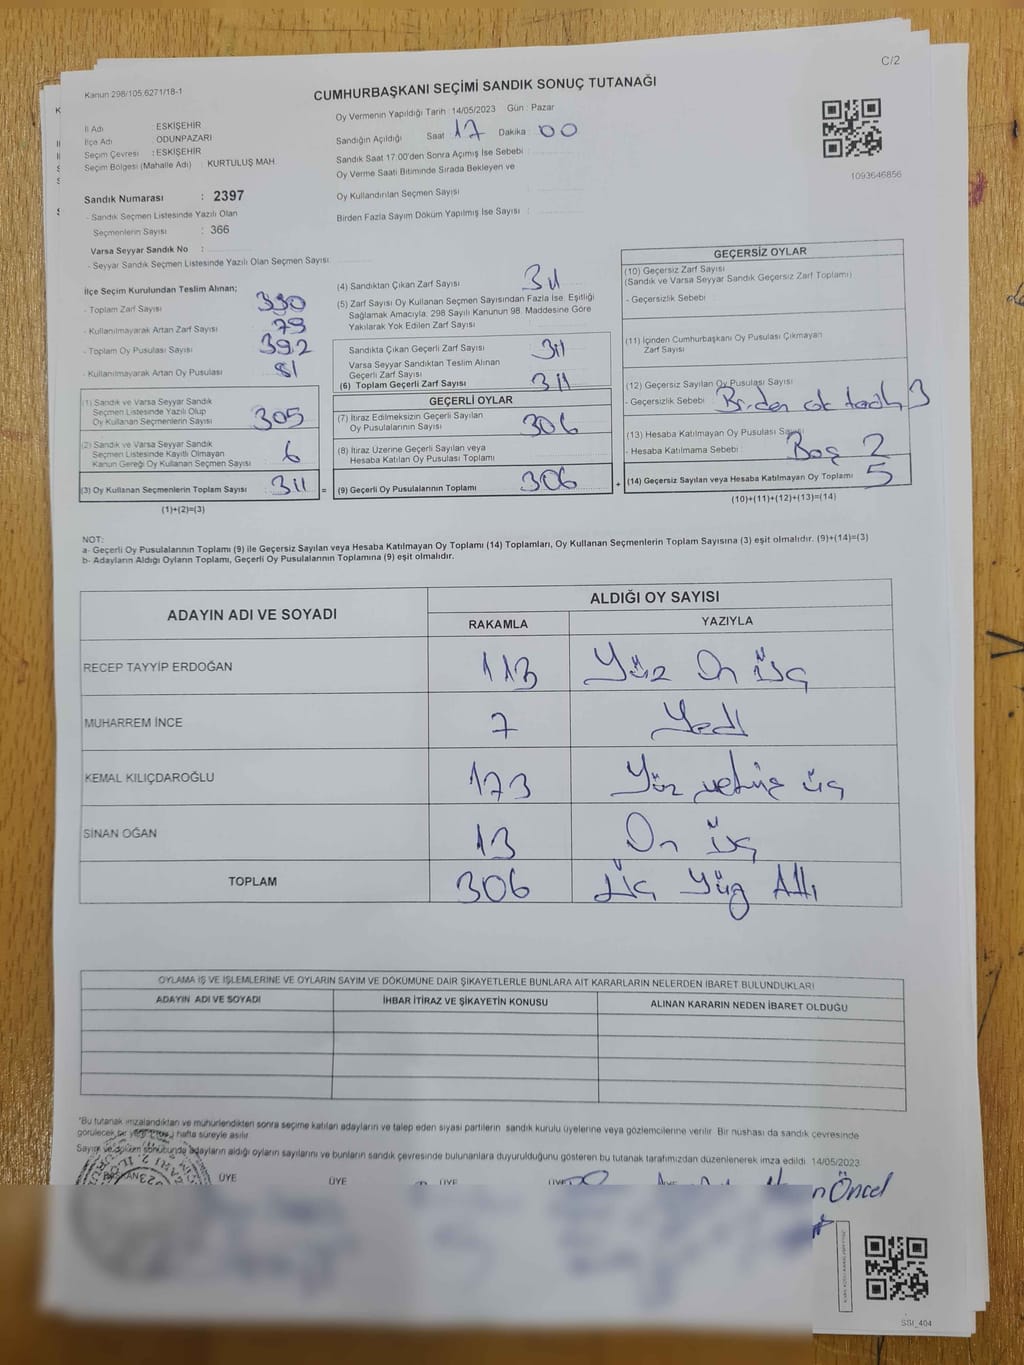 C/2
Kanun 298/105,6271/18-1
CUMHURBAŞKANI SEÇİMİ SANDIK SONUÇ TUTANAĞI
İl Adı ESKİŞEHİR
İlçe Adı ODUNPAZARI
Seçim Çevresi : ESKİŞEHİR
Seçim Bölgesi (Mahalle Adı) : KURTULUŞ MAH.
Sandık Numarası : 2397
- Sandık Seçmen Listesinde Yazılı Olan
Seçmenlerin Sayısı : 366
Varsa Seyyar Sandık No :
- Seyyar Sandık Seçmen Listesinde Yazılı Olan Seçmen Sayısı
Oy Vermenin Yapıldığı Tarih : 14/05/2023 Gün : Pazar
Sandığın Açıldığı Saat : 17 Dakika : 00
Sandık Saat 17:00'den Sonra Açımış İse Sebebi :
Oy Verme Saati Bitiminde Sırada Bekleyen ve
Oy Kullandırılan Seçmen Sayısı :
Birden Fazla Sayım Döküm Yapılmış İse Sayısı :
1093646856
İlçe Seçim Kurulundan Teslim Alınan;
- Toplam Zarf Sayısı 390
- Kullanılmayarak Artan Zarf Sayısı 79
- Toplam Oy Pusulası Sayısı 392
- Kullanılmayarak Artan Oy Pusulası 81
(1) Sandık ve Varsa Seyyar Sandık
Seçmen Listesinde Yazılı Olup
Oy Kullanan Seçmenlerin Sayısı 305
(2) Sandık ve Varsa Seyyar Sandık
Seçmen Listesinde Kayıtlı Olmayan
Kanun Gereği Oy Kullanan Seçmen Sayısı 6
(3) Oy Kullanan Seçmenlerin Toplam Sayısı 311 =
(1)+(2)=(3)
(4) Sandıktan Çıkan Zarf Sayısı 311
(5) Zarf Sayısı Oy Kullanan Seçmen Sayısından Fazla İse, Eşitliği
Sağlamak Amacıyla; 298 Sayılı Kanunun 98. Maddesine Göre
Yakılarak Yok Edilen Zarf Sayısı
Sandıkta Çıkan Geçerli Zarf Sayısı 311
Varsa Seyyar Sandıktan Teslim Alınan
Geçerli Zarf Sayısı
(6) Toplam Geçerli Zarf Sayısı 311
GEÇERLİ OYLAR
(7) İtiraz Edilmeksizin Geçerli Sayılan
Oy Pusulalarının Sayısı 306
(8) İtiraz Üzerine Geçerli Sayılan veya
Hesaba Katılan Oy Pusulası Toplamı
(9) Geçerli Oy Pusulalarının Toplamı 306 +
GEÇERSİZ OYLAR
(10) Geçersiz Zarf Sayısı
(Sandık ve Varsa Seyyar Sandık Geçersiz Zarf Toplamı)
- Geçersizlik Sebebi
(11) İçinden Cumhurbaşkanı Oy Pusulası Çıkmayan
Zarf Sayısı
(12) Geçersiz Sayılan Oy Pusulası Sayısı
- Geçersizlik Sebebi Birden çok tercih 3
(13) Hesaba Katılmayan Oy Pusulası Sayısı
- Hesaba Katılmama Sebebi Boş 2
(14) Geçersiz Sayılan veya Hesaba Katılmayan Oy Toplamı 5
(10)+(11)+(12)+(13)=(14)
NOT:
a- Geçerli Oy Pusulalarının Toplamı (9) ile Geçersiz Sayılan veya Hesaba Katılmayan Oy Toplamı (14) Toplamları, Oy Kullanan Seçmenlerin Toplam Sayısına (3) eşit olmalıdır. (9)+(14)=(3)
b- Adayların Aldığı Oyların Toplamı, Geçerli Oy Pusulalarının Toplamına (9) eşit olmalıdır.
ADAYIN ADI VE SOYADI ALDIĞI OY SAYISI
RAKAMLA YAZIYLA
RECEP TAYYİP ERDOĞAN 113 Yüz On üç
MUHARREM İNCE 7 Yedi
KEMAL KILIÇDAROĞLU 173 Yüz yetmiş üç
SİNAN OĞAN 13 On üç
TOPLAM 306 Üç Yüz Altı
OYLAMA İŞ VE İŞLEMLERİNE VE OYLARIN SAYIM VE DÖKÜMÜNE DAİR ŞİKAYETLERLE BUNLARA AİT KARARLARIN NELERDEN İBARET BULUNDUKLARI
ADAYIN ADI VE SOYADI İHBAR İTİRAZ VE ŞİKAYETİN KONUSU ALINAN KARARIN NEDEN İBARET OLDUĞU
*Bu tutanak imzalandıktan ve mühürlendikten sonra seçime katılan adayların ve talep eden siyasi partilerin sandık kurulu üyelerine veya gözlemcilerine verilir. Bir nüshası da sandık çevresinde
görülecek bir yere hafta süreyle asılır.
Sayım ve döküm sonucunda adayların aldığı oyların sayılarını ve bunların sandık çevresinde bulunanlara duyurulduğunu gösteren bu tutanak tarafımızdan düzenlenerek imza edildi. 14/05/2023
ÜYE ÜYE ÜYE ÜYE
Öncel
SSI_404